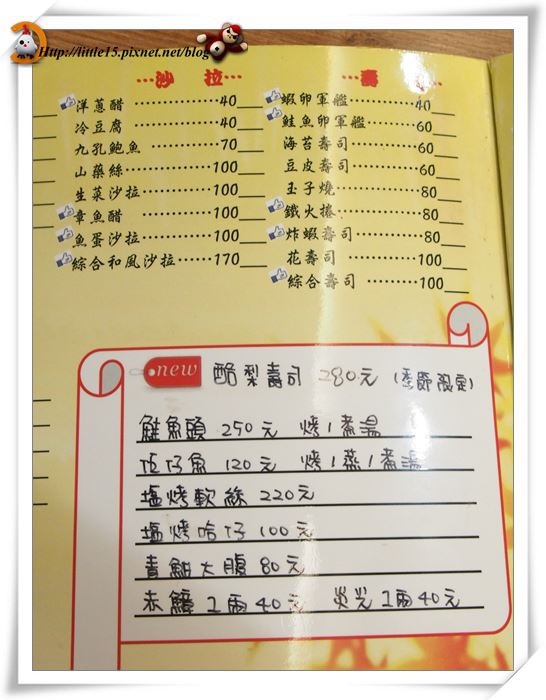 Http://little15.pixnet.net/blog
沙拉
洋蔥醋 40
冷豆腐 40
九孔鮑魚 70
山藥絲 100
生菜沙拉 100
章魚醋 100
魚蛋沙拉 100
綜合和風沙拉 170
壽
蝦卵軍艦 40
鮭魚卵軍艦 60
海苔壽司 60
豆皮壽司 60
玉子燒 80
鐵火捲 80
炸蝦壽司 80
花壽司 100
綜合壽司 100
new 酪梨壽司 280元 (季節限定)
鮭魚頭 250元 烤/煮湯
仔魚 120元 烤/蒸/煮湯
塩烤軟絲 220元
塩烤哈仔 100元
青魽大腹 80元
赤鯮 1兩40元 1兩40元